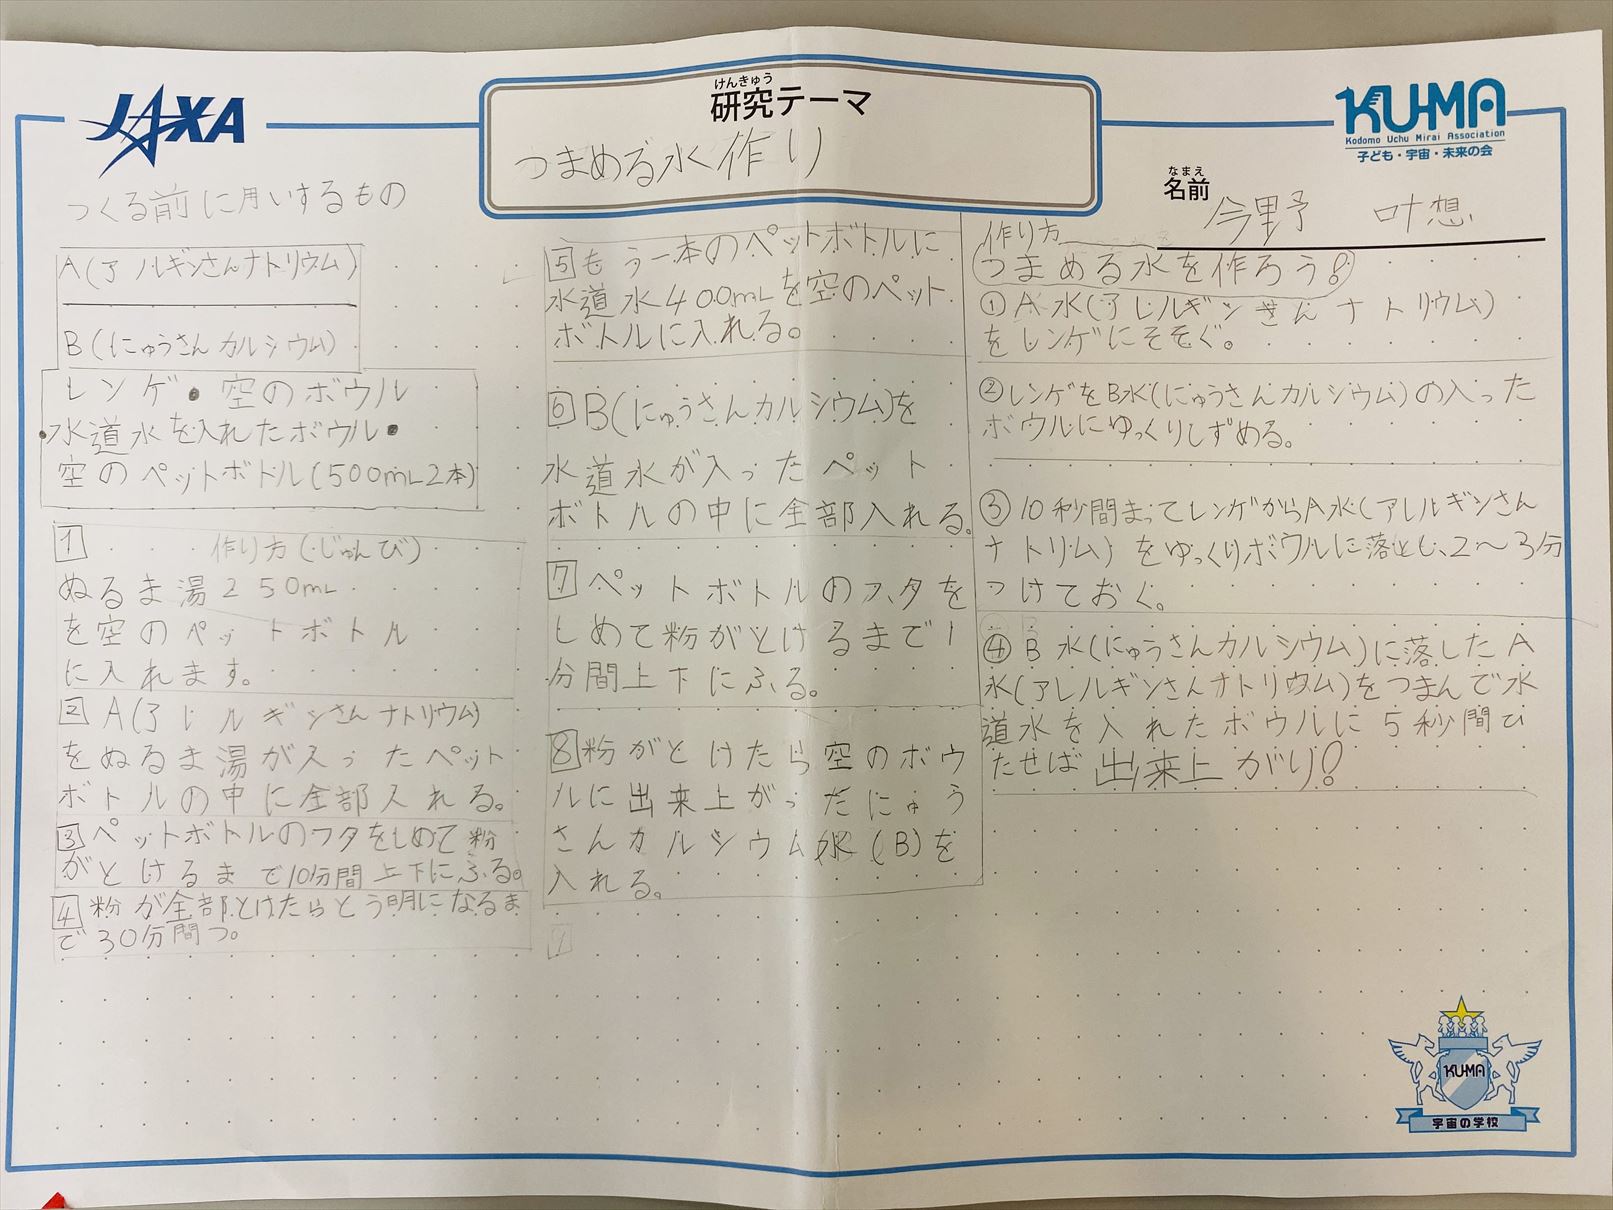 JAXA
けんきゅう
研究テーマ
つまめる水作り
KU-MA
Kodomo Uchu Mirai Association
子ども・宇宙・未来の会
なまえ
名前
今野 叶想
つくる前に用いするもの
A(アルギンさんナトリウム)
B(にゅうさんカルシウム)
レンゲ・空のボウル
・水道水を入れたボウル・
空のペットボトル(500mL2本)
1 作り方(じゅんび)
ぬるま湯250mL
を空のペットボトル
に入れます。
2 A(アレルギンさんナトリウム)
をぬるま湯が入ったペット
ボトルの中に全部入れる。
3 ペットボトルのフタをしめて粉
がとけるまで10分間上下にふる。
4 粉が全部とけたらとう明になるま
で30分間つ。
5 もう一本のペットボトルに
水道水400mLを空のペット
ボトルに入れる。
6 B(にゅうさんカルシウム)を
水道水が入ったペット
ボトルの中に全部入れる。
7 ペットボトルのフタを
しめて粉がとけるまで1
分間上下にふる。
8 粉がとけたら空のボウ
ルに出来上がったにゅう
さんカルシウム水(B)を
入れる。
作り方
つまめる水を作ろう!
① A水(アレルギンさんナトリウム)
をレンゲにそそぐ。
②レンゲをB水(にゅうさんカルシウム)の入った
ボウルにゆっくりしずめる。
③10秒間まってレンゲからA水(アレルギンさん
ナトリム)をゆっくりボウルに落とし、2〜3分
つけておく。
④B水(にゅうさんカルシウム)に落したA
水(アレルギンさんナトリウム)をつまんで水
道水を入れたボウルに5秒間ひ
たせば出来上がり!
KU-MA
宇宙の学校